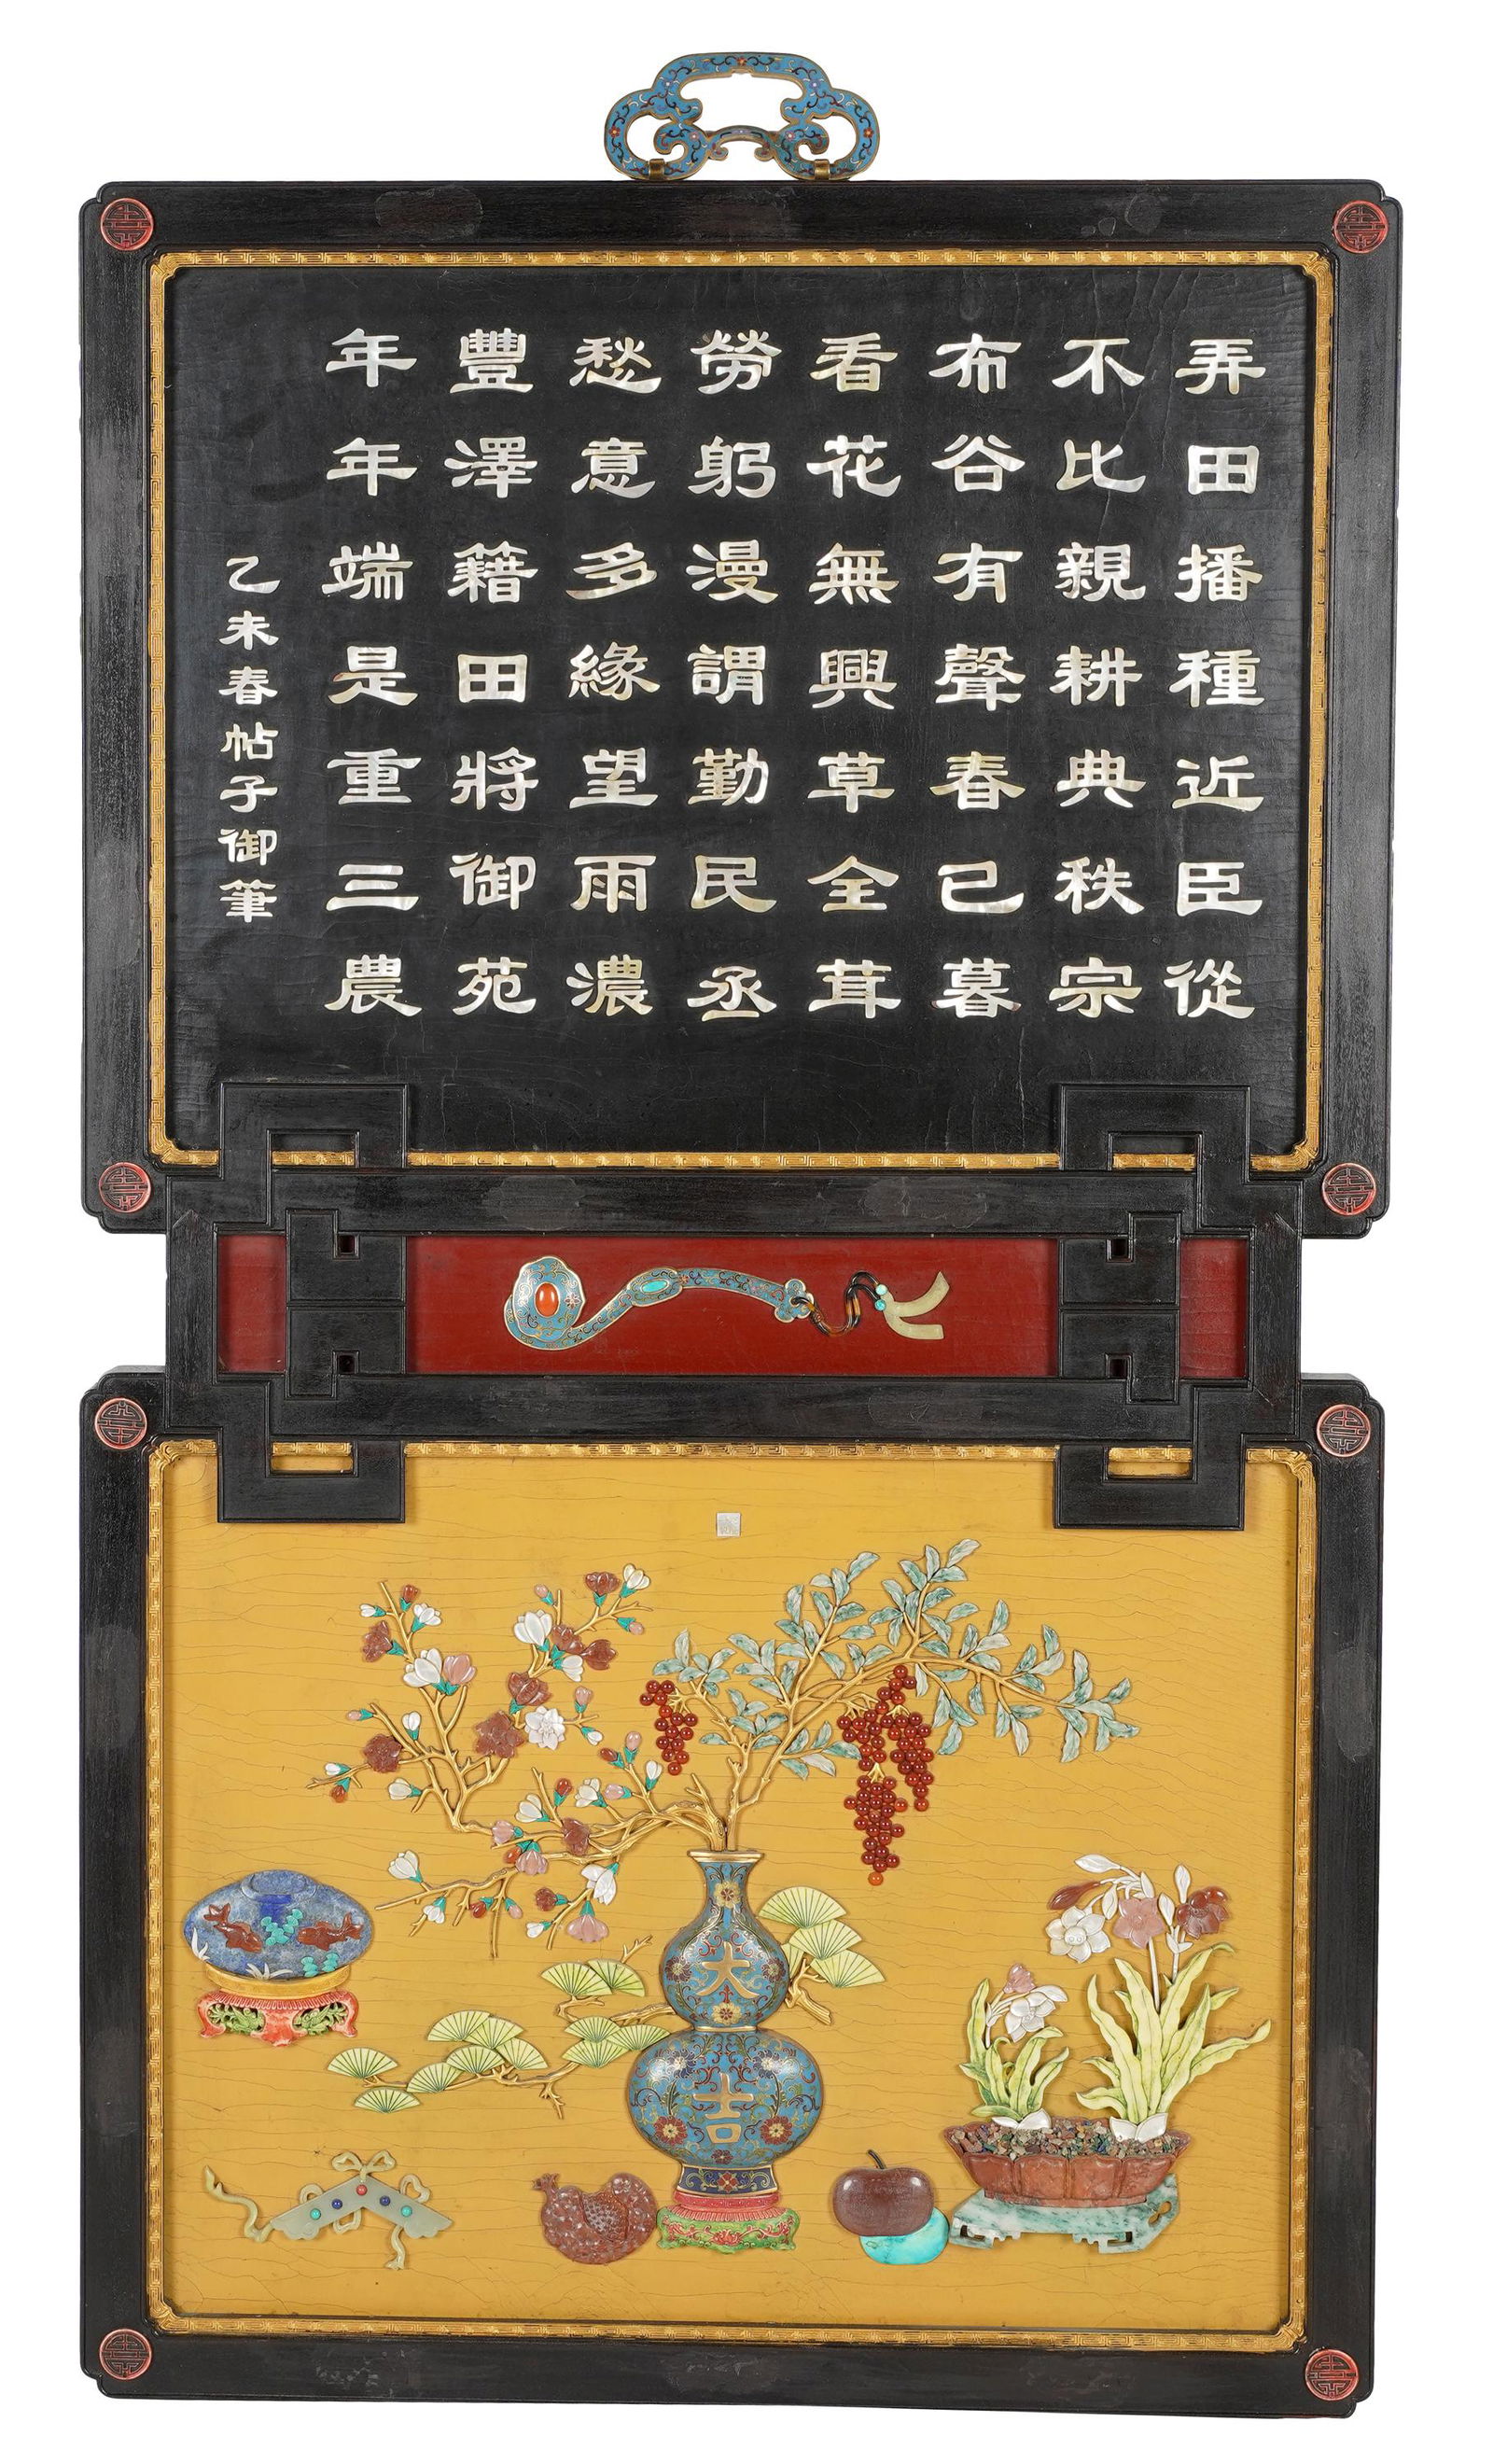 弄田播種近臣從
不比親耕典秩宗
布谷有聲春已暮
看花無興草全茸
勞躬漫謂勤民丞
愁意多緣望雨濃
豐澤籍田將御苑
年年端是重三農
乙未春帖子御筆
大
吉